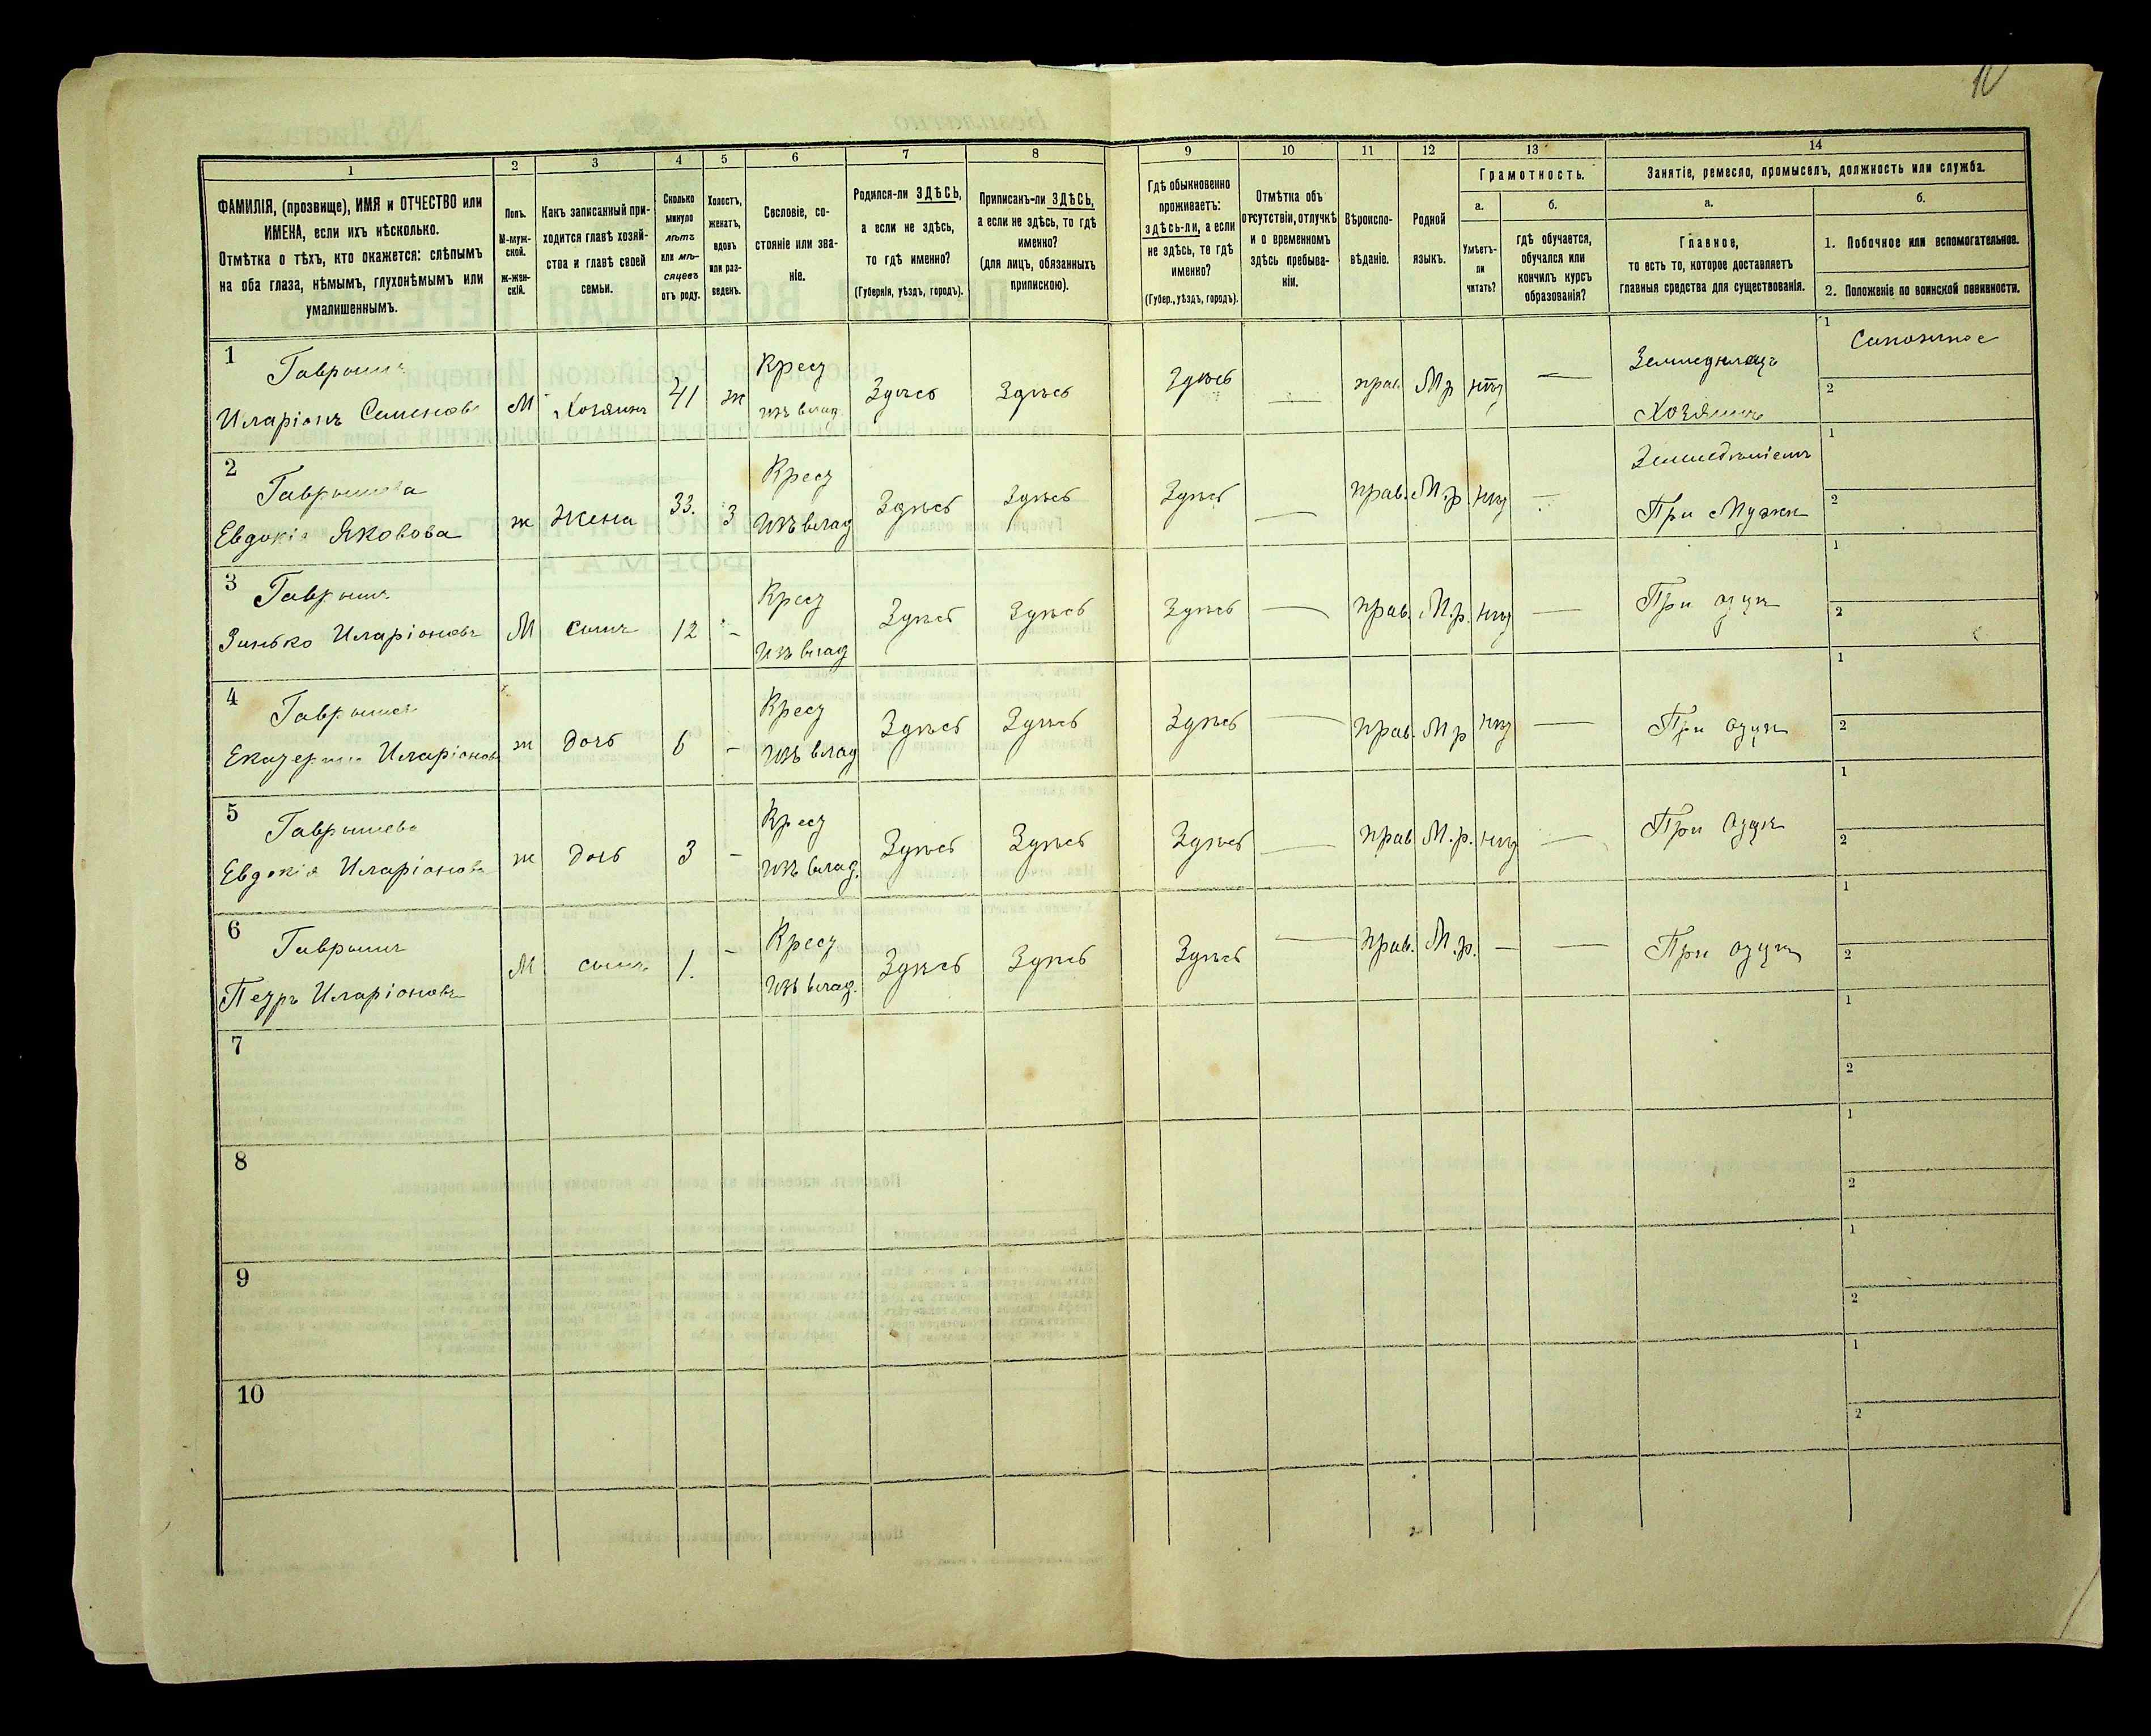 10
1 2 3 4 5 6 7 8 9 10 11 12 13 14
ФАМИЛІЯ, (прозвище), ИМЯ и ОТЧЕСТВО или
ИМЕНА, если ихъ нѣсколько.
Отмѣтка о тѣхъ, кто окажется: слѣпымъ
на оба глаза, нѣмымъ, глухонѣмымъ или
умалишеннымъ.
Полъ.
М-муж-
ской.
Ж-жен-
скій.
Какъ записанный при-
ходится главѣ хозяй-
ства и главѣ своей
семьи.
Сколько
минуло
лѣтъ
или мѣ-
сяцевъ
отъ роду.
Холостъ,
женатъ,
вдовъ
или раз-
веденъ.
Сословіе, со-
стояніе или зва-
ніе.
Родился-ли ЗДѢСЬ,
а если не здѣсь,
то гдѣ именно?
(Губернія, уѣздъ, городъ).
Приписанъ-ли ЗДѢСЬ,
а если не здѣсь, то гдѣ
именно?
(для лицъ, обязанныхъ
припискою).
Гдѣ обыкновенно
проживаетъ:
здѣсь-ли, а если
не здѣсь, то гдѣ
именно?
(Губер., уѣздъ, городъ).
Отмѣтка объ
отсутствіи, отлучкѣ
и о временномъ
здѣсь пребыва-
ніи.
Вѣроиспо-
вѣданіе.
Родной
языкъ.
Грамотность.
а.
Умѣетъ-
ли
читать?
б.
гдѣ обучается,
обучался или
кончилъ курсъ
образованія?
Занятіе, ремесло, промыселъ, должность или служба.
а.
Главное,
то есть то, которое доставляетъ
главныя средства для существованія.
б.
1. Побочное или вспомогательное.
2. Положеніе по воинской повинности.
1 Гаврышъ Крест Земледѣлецъ 1 Сапожное
Иларіонъ Семеновъ М Хозяинъ 41 ж изъ влад. Здѣсь Здѣсь Здѣсь — прав. М.р нѣт — Хозяинъ 2
2 Гаврышева Крест Земледѣліемъ 1
Евдокія Яковова ж Жена 33. З Изъ влад Здѣсь Здѣсь Здѣсь — прав. М.р нѣт — При Мужѣ 2
3 Гаврышъ Крест 1
Зинько Иларіоновъ М сынъ 12 - Изъ влад Здѣсь Здѣсь Здѣсь — прав. М.р. нѣт — При отцѣ 2
4 Гаврышева Крест 1
Екатерина Иларіонов ж дочь 6 - Изъ влад Здѣсь Здѣсь Здѣсь — прав. М.р нѣт — При отцѣ 2
5 Гаврышева Крест 1
Евдокія Иларіонова ж дочь 3 - Изъ влад. Здѣсь Здѣсь Здѣсь — прав М.р. нѣт — При отцѣ 2
6 Гаврышъ Крест 1
Петръ Иларіоновъ М сынъ 1. - Изъ влад. Здѣсь Здѣсь Здѣсь — прав. М.р. — — При отцѣ 2
7 1
2
8 1
2
9 1
2
10 1
2